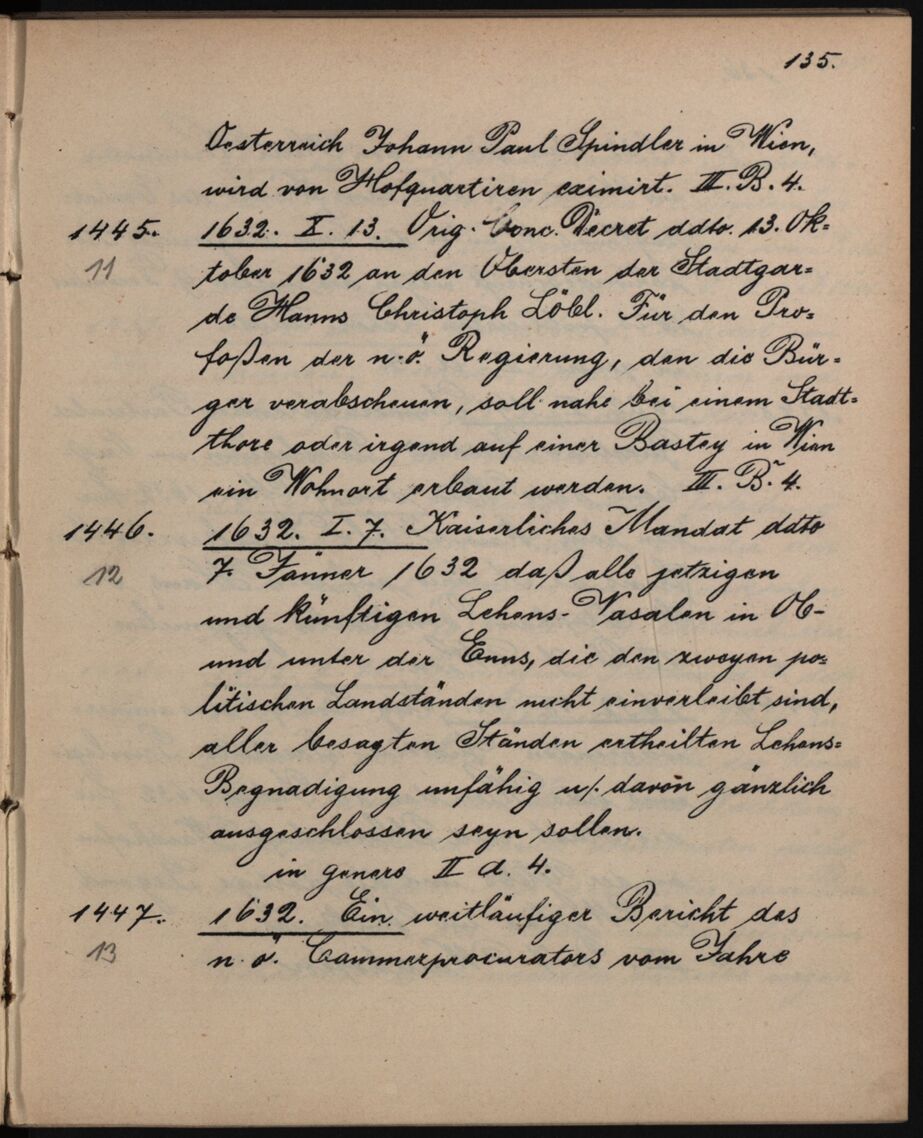 135.
Oesterreich Johann Paul Spindler in Wien,
wird von Hofquartiren eximirt. III. B. 4.
1445. 1632. X. 13. Orig. Conc. Decret ddto. 13. Ok=
11 tober 1632 an den Obersten der Stadtgar=
de Hanns Christoph Löbl. Für den Pro=
foßen der n.ö. Regierung, den die Bür=
ger verabscheuen, soll nahe bei einem Stadt=
thore oder irgend auf einer Bastey in Wien
ein Wohnort erbaut werden. III. B. 4.
1446. 1632. I. 7. Kaiserliches Mandat ddto
12 7. Jänner 1632 daß alle jetzigen
und künftigen Lehens-Vasalen in Ob-
und unter der Enns, die den zweyen po=
litischen Landständen nicht einverleibt sind,
aller besagten Ständen ertheilten Lehens=
Begnadigung unfähig u/. davon gänzlich
ausgeschlossen seyn sollen.
in genere II d. 4.
1447. 1632. Ein weitläufiger Bericht des
13 n.ö. Cammerprocurators vom Jahre